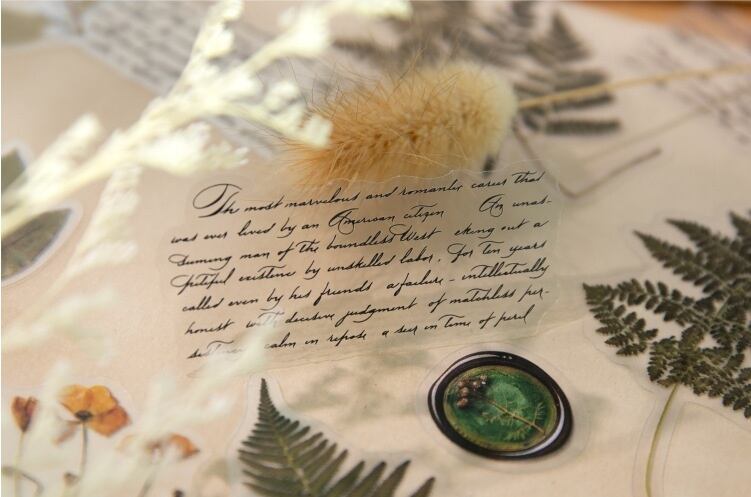 The most marvelous and romantic career that
was ever lived by an American citizen An unas-
suming man of the boundless West eking out a
pitiful existence by unskilled labor, for ten years
called even by his friends a failure - intellectually
honest with decisive judgment of matchless per-
calm in repose a seer in time of peril